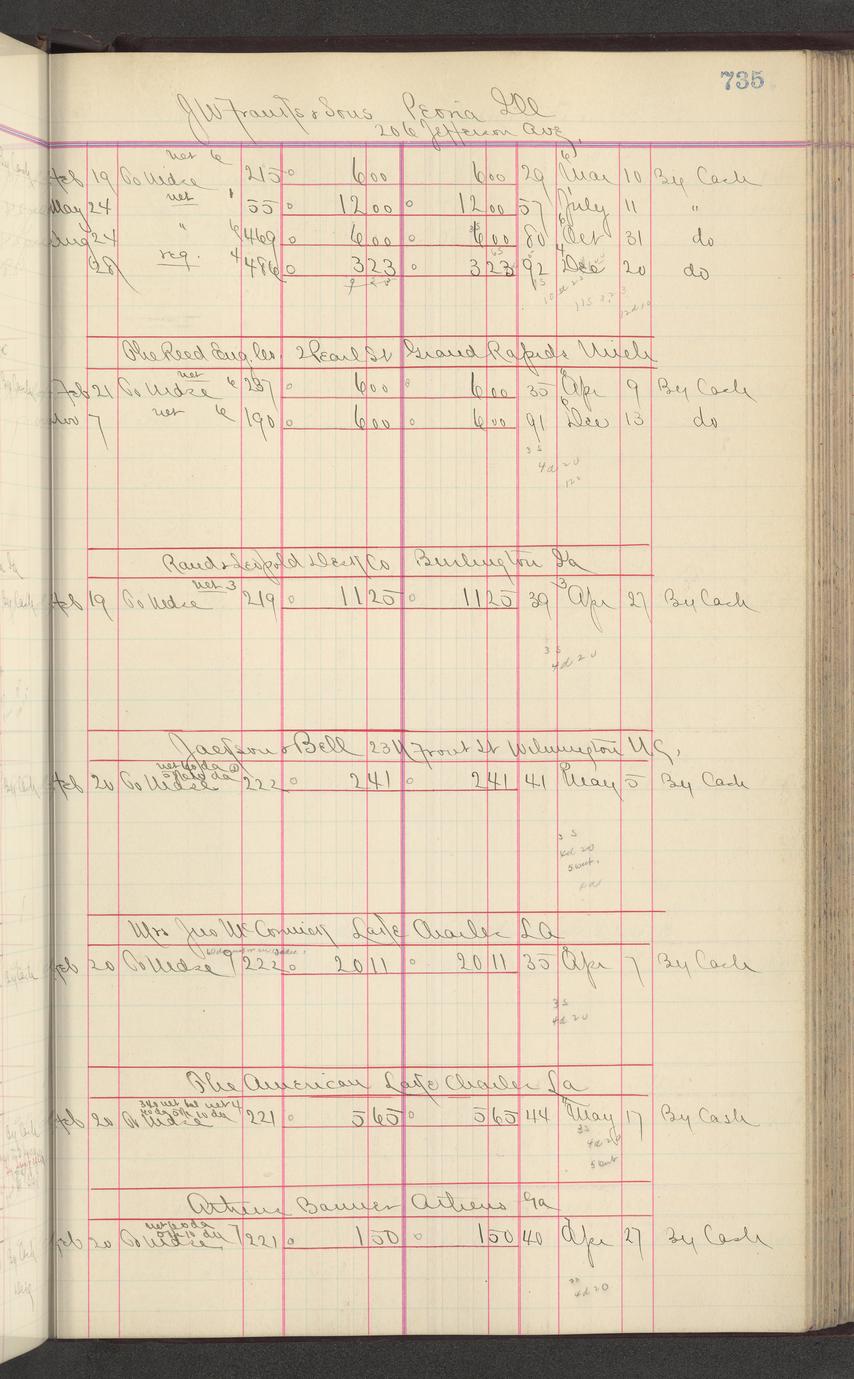 735
J W Franks & Sons Peoria Ill
206 Jefferson Ave,
net 6
Feb 19 To Mdse 215 6 00 6 00 29 Mar 10 By Cash
May 24 net 55 12 00 12 00 57 July 11 "
Aug 24 " 6 469 6 00 6 00 80 Oct 31 do
28 reg. 4 486 3 23 3 23 92 Dec 20 do
The Reed Eng. Co. 2 Pearl St Grand Rapids Mich
net
Feb 21 To Mdse 6 237 6 00 6 00 35 Apr 9 By Cash
Nov 7 net 6 190 6 00 6 00 91 Dec 13 do
3 S
4d 20
Rand & Leopold Desk Co Burlington Ia
net 3
Feb 19 To Mdse 219 11 25 11 25 39 Apr 27 By Cash
3 S
4d 20
Jackson & Bell Front St Wilmington N.C,
net 60 da
5% 10 da
Feb 20 To Mdse 222 2 41 2 41 41 May 5 By Cash
3 S
4d 20
5 went.
Mrs Jno McCormick Lake Charles La
Feb 20 To Mdse 9 222 20 11 20 11 35 Apr 7 By Cash
3 S
4d 20
The American Lake Charles La
340 net bal net 4
10 da
Feb 20 To Mdse 221 5 65 5 65 44 May 17 By Cash
3 S
4d 20
5 went
Athens Banner Athens Ga
net 60 da
5% 10 da
Feb 20 To Mdse 7 221 1 50 1 50 40 Apr 27 By Cash
4d 20